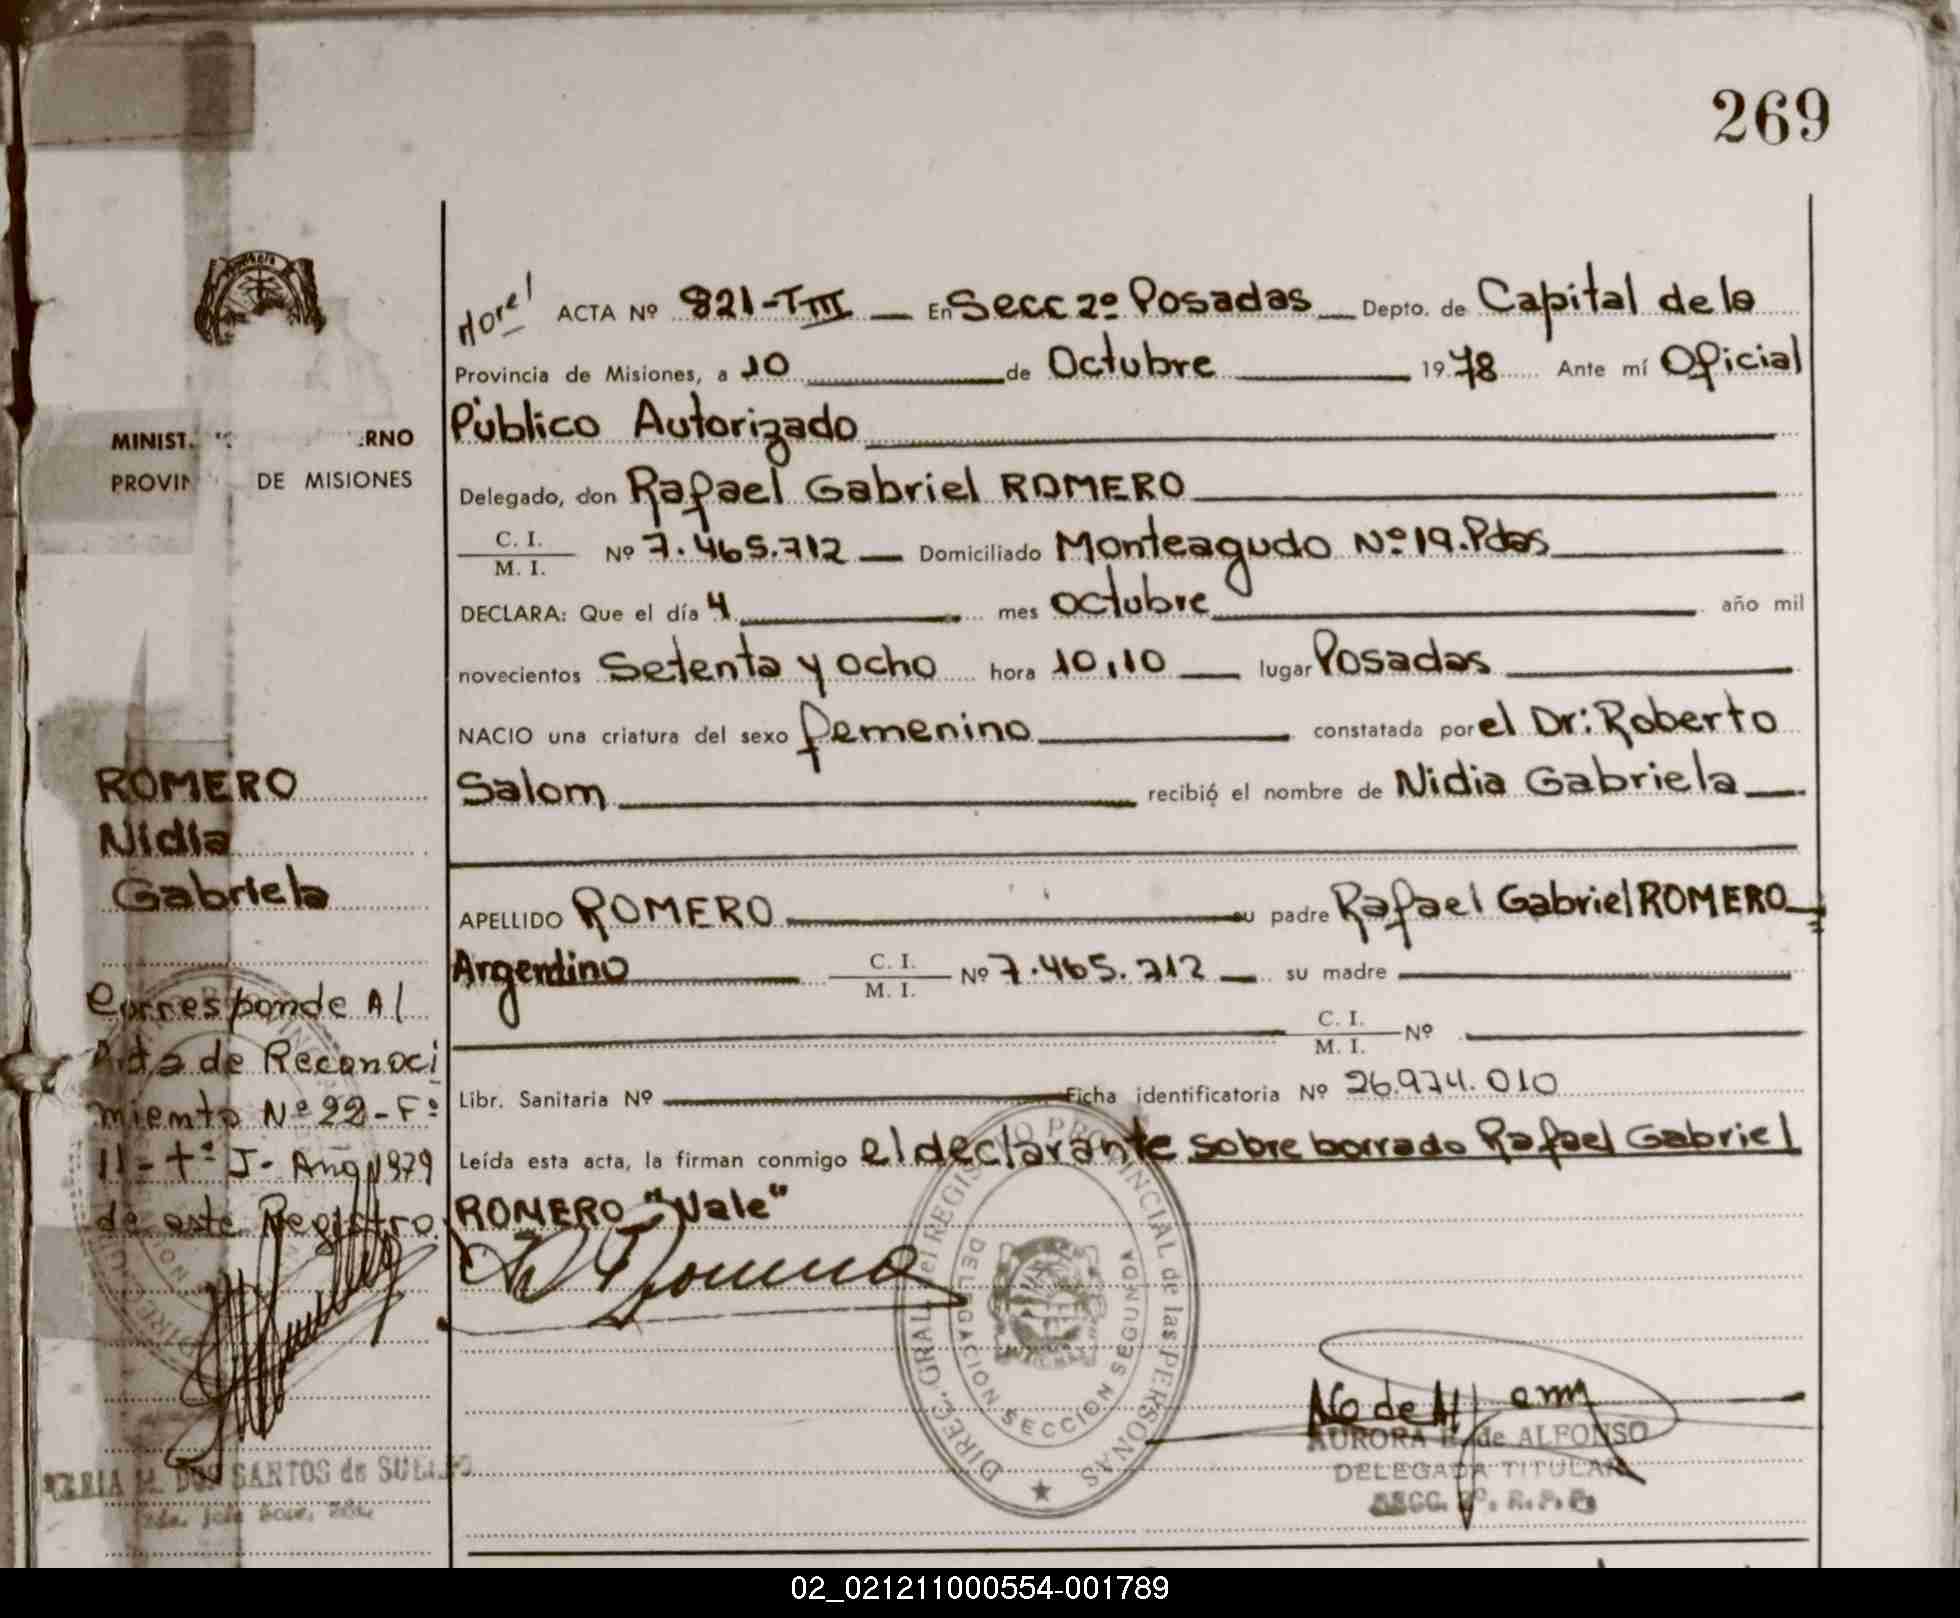 269
ACTA Nº 821-TIII En Secc 2º Posadas Depto. de Capital de la
Provincia de Misiones, a 10 de Octubre 1978 Ante mí Oficial
Público Autorizado
Delegado, don Rafael Gabriel ROMERO
C. I.
M. I. Nº 7.465.712 Domiciliado Monteagudo Nº 19. Pdas
DECLARA: Que el día 4 mes octubre año mil
novecientos Setenta y ocho hora 10,10 lugar Posadas
NACIO una criatura del sexo femenino constatada por el Dr: Roberto
Salom recibió el nombre de Nidia Gabriela
APELLIDO ROMERO su padre Rafael Gabriel ROMERO
Argentino C. I.
M. I. Nº 7.465.712 su madre
C. I.
M. I. Nº
Libr. Sanitaria Nº Ficha identificatoria Nº 26.974.010
Leída esta acta, la firman conmigo el declarante sobre borrado Rafael Gabriel
ROMERO "Vale"
DIREC. GRAL. del REGISTRO PROVINCIAL de las PERSONAS
DELEGACION SECCION SEGUNDA
AURORA de ALFONSO
DELEGADA TITULAR
SECC. 2º. R. P. P.
MINIST. RNO
PROVIN DE MISIONES
ROMERO
Nidia
Gabriela
Corresponde Al
Acta de Reconoci
miento Nº 22 - Fº
11 - tº I - Año 1979
de este Registro.
MARIA M. DOS SANTOS de
02_021211000554-001789